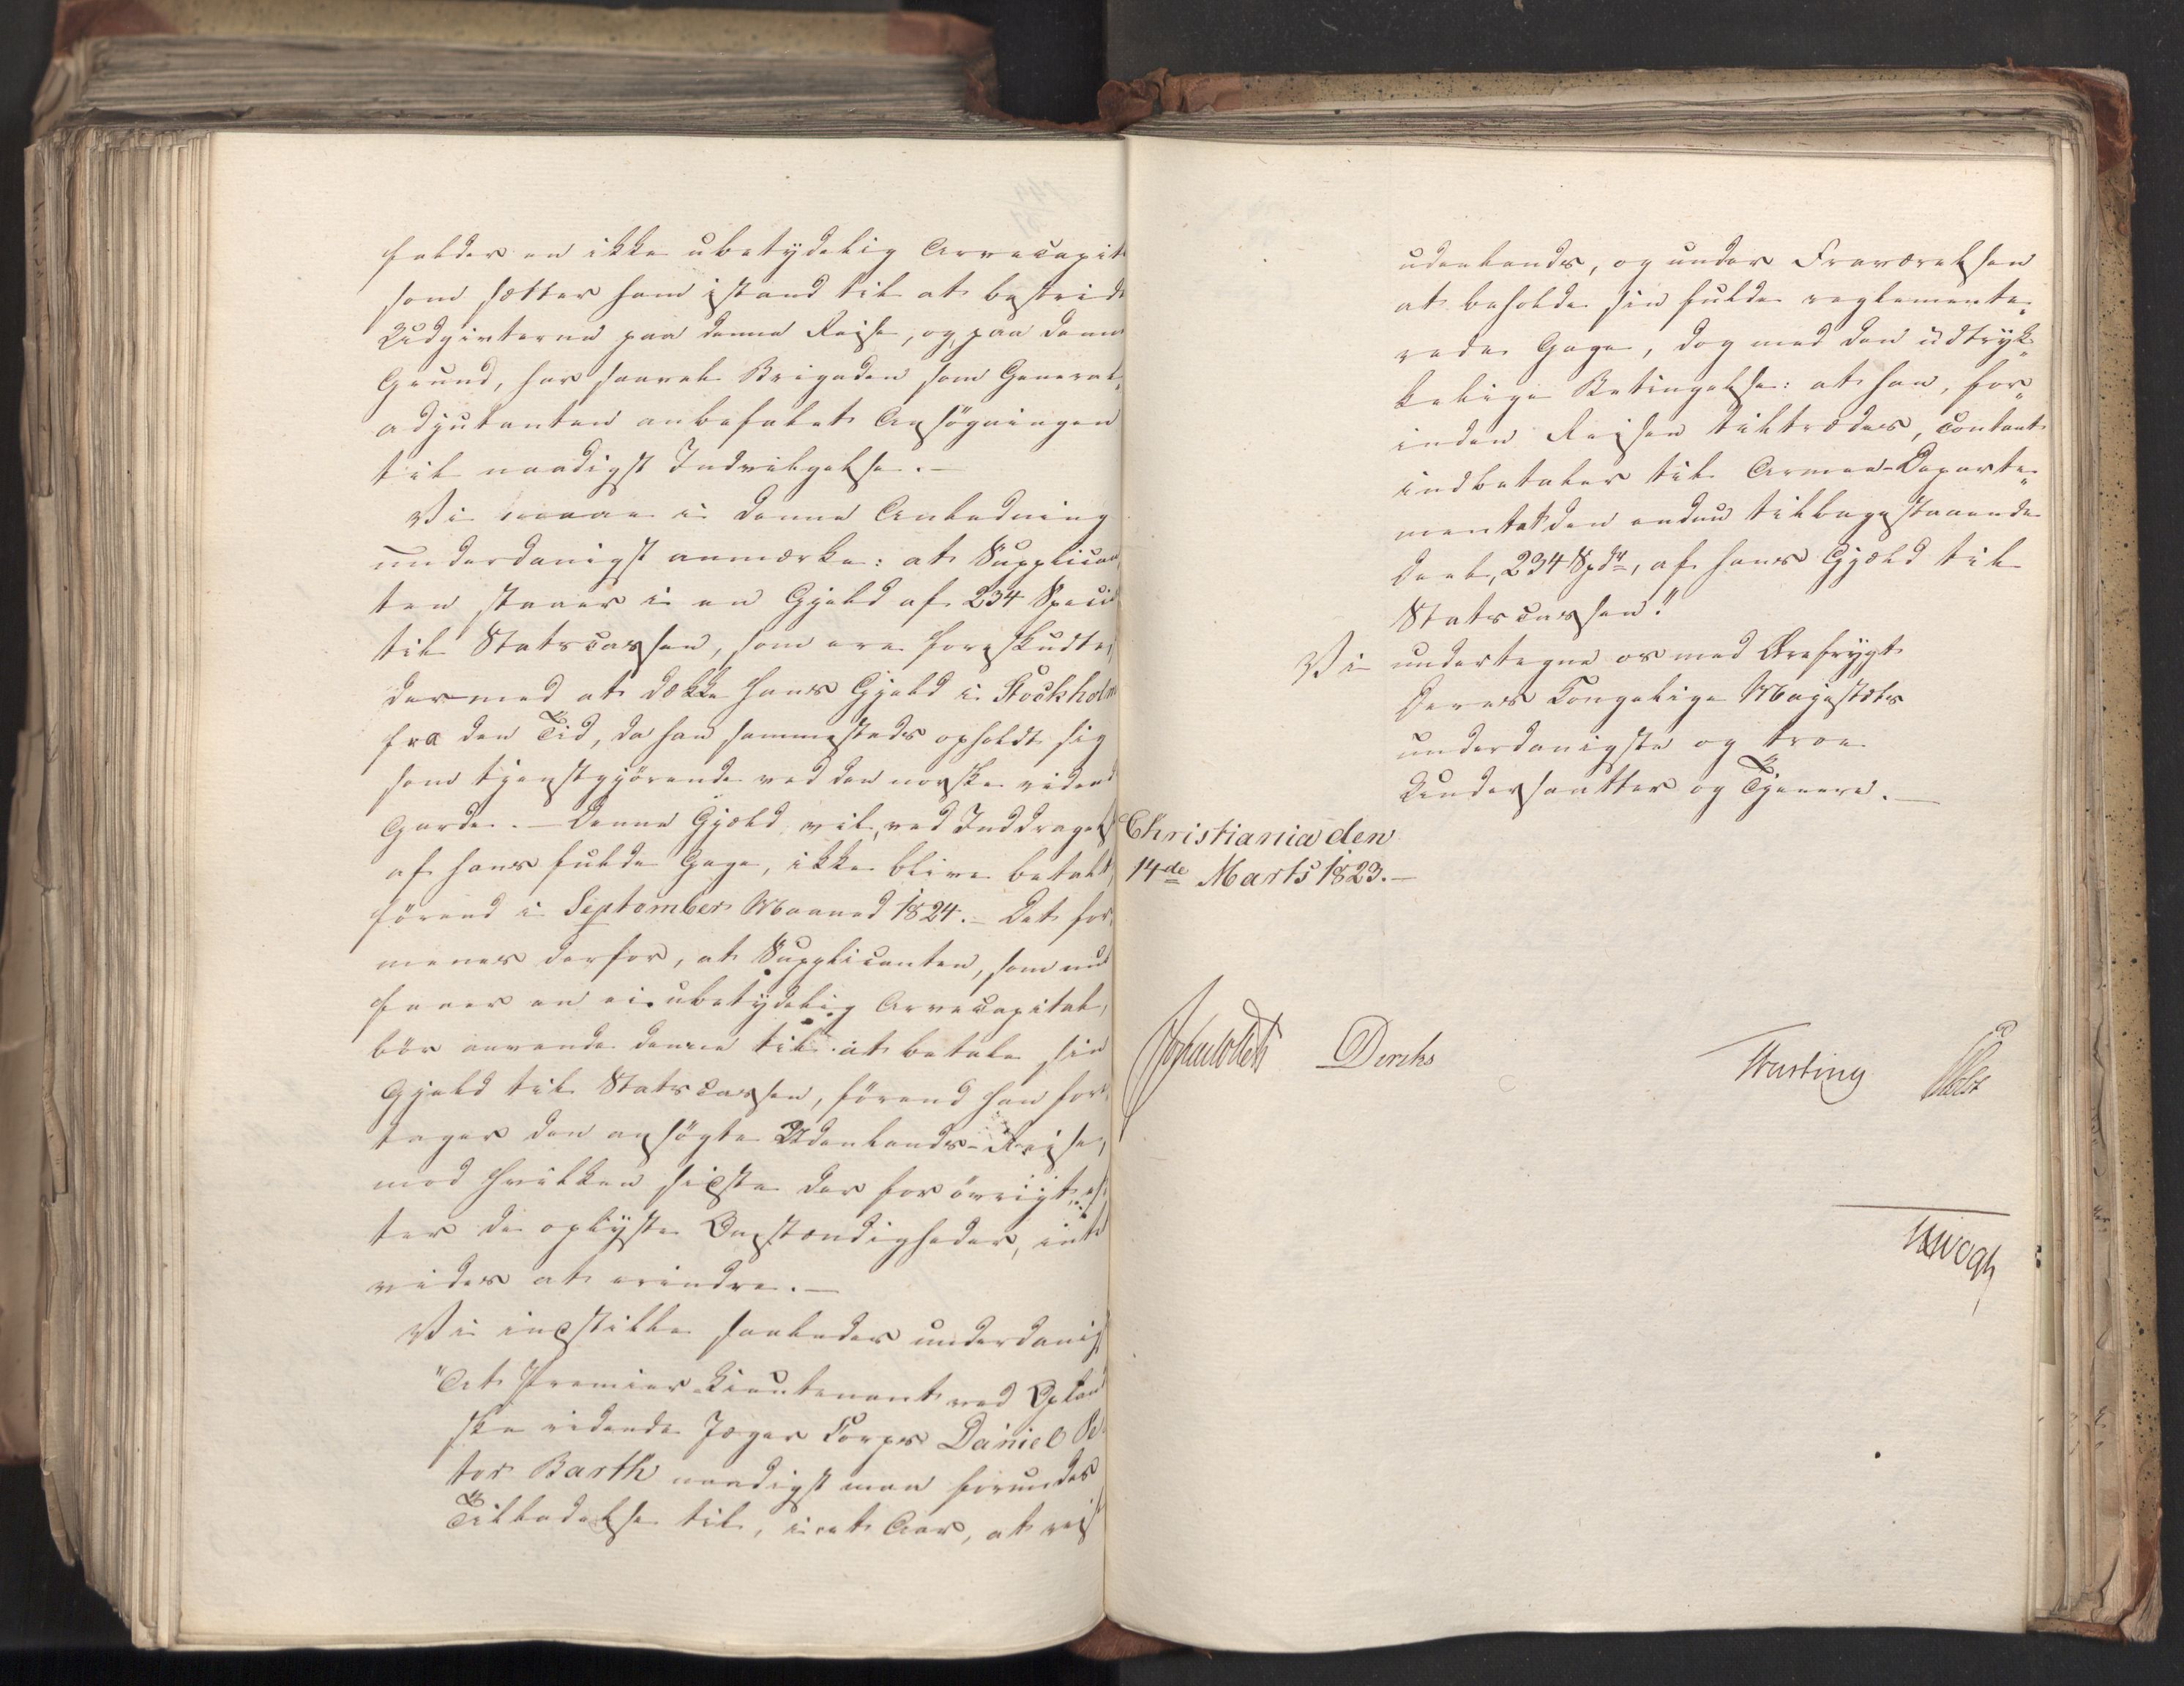 falder en ikke ubetydelig Arvecapit
som sætter ham istand til at bestride
Udgivterne paa denne Reise, og, paa denne
Grund, har saavel Brigaden som General„
adjutanten anbefalet Ansögningen
til naadigst Indvilgelse. —
Vi maae i denne Anledning
underdanigst anmærke: at Supplican„
ten staaer i en Gjeld af 234 Specid
til Statscassen, som ere forskudte,
dermed at dække hans Gjeld i Stockholm
fra den Tid, da han sammesteds opholdt sig
som tjenstgjörende ved den norske ridend
Garde. — Denne Gjæld vil, ved Inddragels
af hans fulde Gage, ikke blive betalt,
förend i September Maaned 1824. — Det for„
menes derfor, at Supplicanten, som nu
faaer en ei ubetydelig Arvecapital,
bör anvende denne til at betale sin
Gjeld til Statscassen, förend han fore„
tager den ansögte Udenlands-Reise,
mod hvilken sidste der for övrigt, ef„
ter de oplyste Omstændigheder, intet
vides at erindre. —
Vi indstille saaledes underdanigst
"At Premier-Lieutenant ved Oplan„
ske ridende Jæger Corps Daniel Pe„
ter Barth naadigst maa forundes
Tilladelse til, i et Aar, at reise
udenlands, og under Fraværelsen
at beholde sin fulde reglemente„
rede Gage, dog med den udtryk„
kelige Betingelse: at han, for„
inden Reisen tiltrædes, contant
indbetaler til Armee-Departe„
mentet den endnu tilbagestaaende
Deel, 234 Spdr, af hans Gjæld til
Statscassen."
Vi undertegne os med Ærefrygt
Deres Kongelige Majestæts
underdanigste og troe
Undersaatter og Tjenere. —
Christiania den
14de Marts 1823. —
Diriks
Krogh